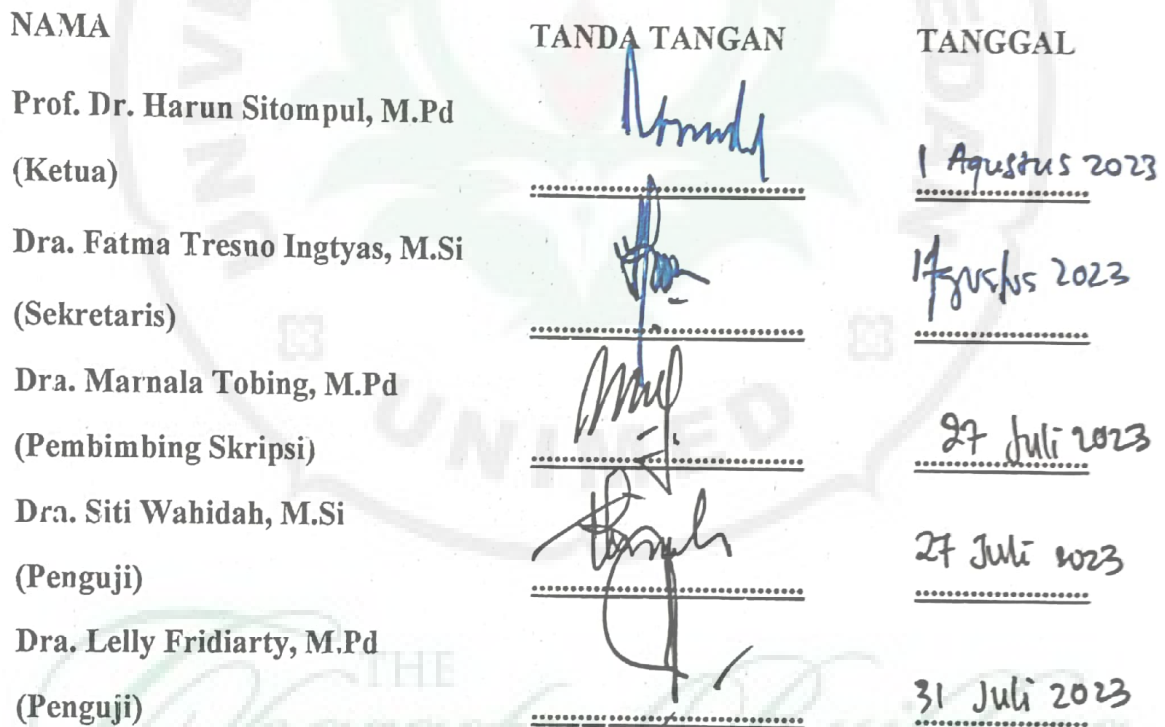 NAMA TANDA TANGAN TANGGAL
Prof. Dr. Harun Sitompul, M.Pd
(Ketua) 1 Agustus 2023
Dra. Fatma Tresno Ingtyas, M.Si
1 Agustus 2023
(Sekretaris)
Dra. Marnala Tobing, M.Pd
(Pembimbing Skripsi) 27 Juli 2023
Dra. Siti Wahidah, M.Si
27 Juli 2023
(Penguji)
Dra. Lelly Fridiarty, M.Pd
(Penguji) 31 Juli 2023
UNIMED
THE